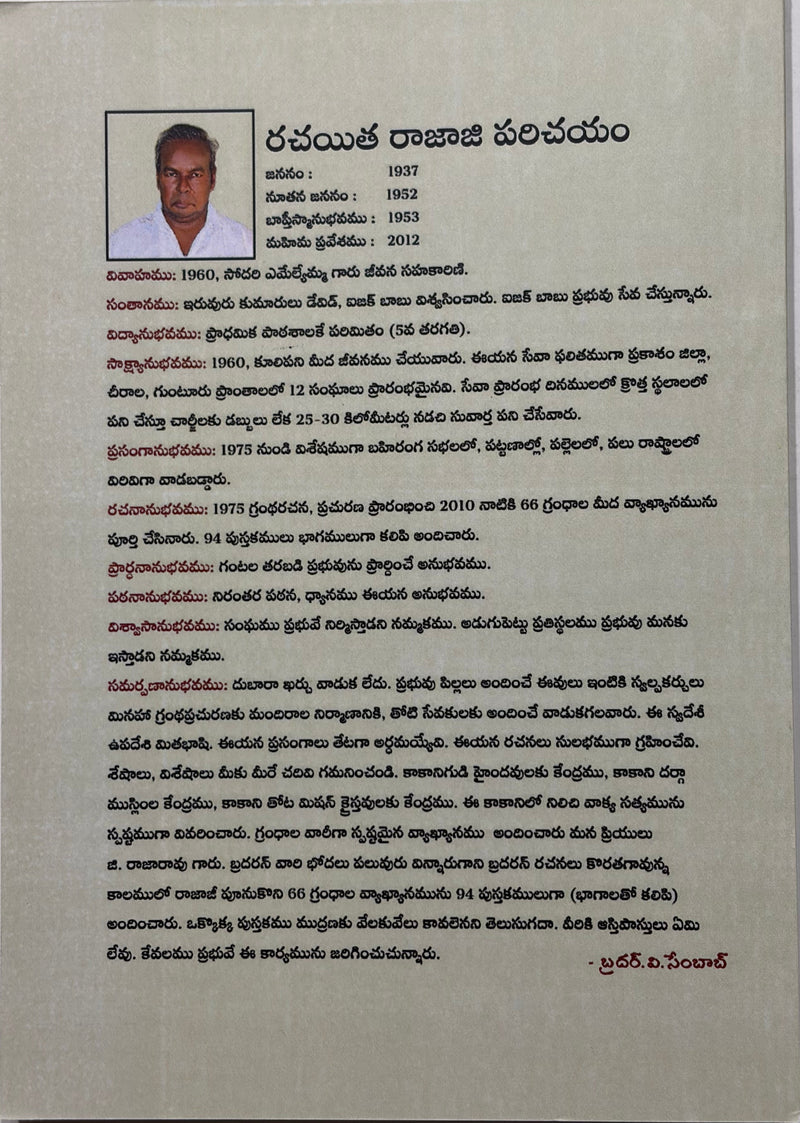 రచయిత రాజాజి పరిచయం
జననం : 1937
నూతన జననం : 1952
బాప్తీస్మానుభవము : 1953
మహిమ ప్రవేశము : 2012
వివాహము: 1960, సోదరి ఎమేల్యేమ్మ గారు జీవన సహకారిణి.
సంతానము: ఇరువురు కుమారులు డేవిడ్, ఐజక్ బాబు విశ్వసించారు. ఐజక్ బాబు ప్రభువు సేవ చేస్తున్నారు.
విద్యానుభవము: ప్రాధమిక పాఠశాలకే పరిమితం (5వ తరగతి).
సాక్ష్యానుభవము: 1960, కూలిపని మీద జీవనము చేయువారు. ఈయన సేవా ఫలితముగా ప్రకాశం జిల్లా,
చీరాల, గుంటూరు ప్రాంతాలలో 12 సంఘాలు ప్రారంభమైనవి. సేవా ప్రారంభ దినములలో క్రొత్త స్థలాలలో
పని చేస్తూ చార్జీలకు డబ్బులు లేక 25-30 కిలోమీటర్లు నడచి సువార్త పని చేసేవారు.
ప్రసంగానుభవము: 1975 నుండి విశేషముగా బహిరంగ సభలలో, పట్టణాల్లో, పల్లెలలో, పలు రాష్ట్రాలలో
విరివిగా వాడబడ్డారు.
రచనానుభవము: 1975 గ్రంథరచన, ప్రచురణ ప్రారంభించి 2010 నాటికి 66 గ్రంధాల మీద వ్యాఖ్యానమును
పూర్తి చేసినారు. 94 పుస్తకములు భాగములుగా కలిపి అందించారు.
ప్రార్ధనానుభవము: గంటల తరబడి ప్రభువును ప్రార్దించే అనుభవము.
పఠనానుభవము: నిరంతర పఠన, ధ్యానము ఈయన అనుభవము.
విశ్వాసానుభవము: సంఘము ప్రభువే నిర్మిస్తాడని నమ్మకము. అడుగుపెట్టు ప్రతిస్థలము ప్రభువు మనకు
ఇస్తాడని నమ్మకము.
సమర్పణానుభవము: దుబారా ఖర్చు వాడుక లేదు. ప్రభువు పిల్లలు అందించే ఈవులు ఇంటికి స్వల్పకర్చులు
మినహా గ్రంథప్రచురణకు మందిరాల నిర్మాణానికి, తోటి సేవకులకు అందించే వాడుకగలవారు. ఈ స్వదేశీ
ఉపదేశి మితభాషి. ఈయన ప్రసంగాలు తేటగా అర్ధమయ్యేవి. ఈయన రచనలు సులభముగా గ్రహించేవి.
శేషాలు, విశేషాలు మీకు మీరే చదివి గమనించండి. కాకానిగుడి హైందవులకు కేంద్రము, కాకాని దర్గా
ముస్లింల కేంద్రము, కాకాని తోట మిషన్ క్రైస్తవులకు కేంద్రము. ఈ కాకానిలో నిలిచి వాక్య సత్యమును
స్పష్టముగా వివరించారు. గ్రంధాల వారీగా స్పష్టమైన వ్యాఖ్యానము అందించారు మన ప్రియులు
జి. రాజారావు గారు. బ్రదరన్ వారి భోదలు పలువురు విన్నారుగాని బ్రదరన్ రచనలు కొరతగావున్న
కాలములో రాజాజీ పూనుకొని 66 గ్రంధాల వ్యాఖ్యానమును 94 పుస్తకములుగా (భాగాలతో కలిపి)
అందించారు. ఒక్కొక్క పుస్తకము ముద్రణకు వేలకువేలు కావలెనని తెలుసుగదా. వీరికి ఆస్తిపాస్తులు ఏమి
లేవు. కేవలము ప్రభువే ఈ కార్యమును జరిగించుచున్నారు.
- బ్రదర్.వి.సేంబాబ్